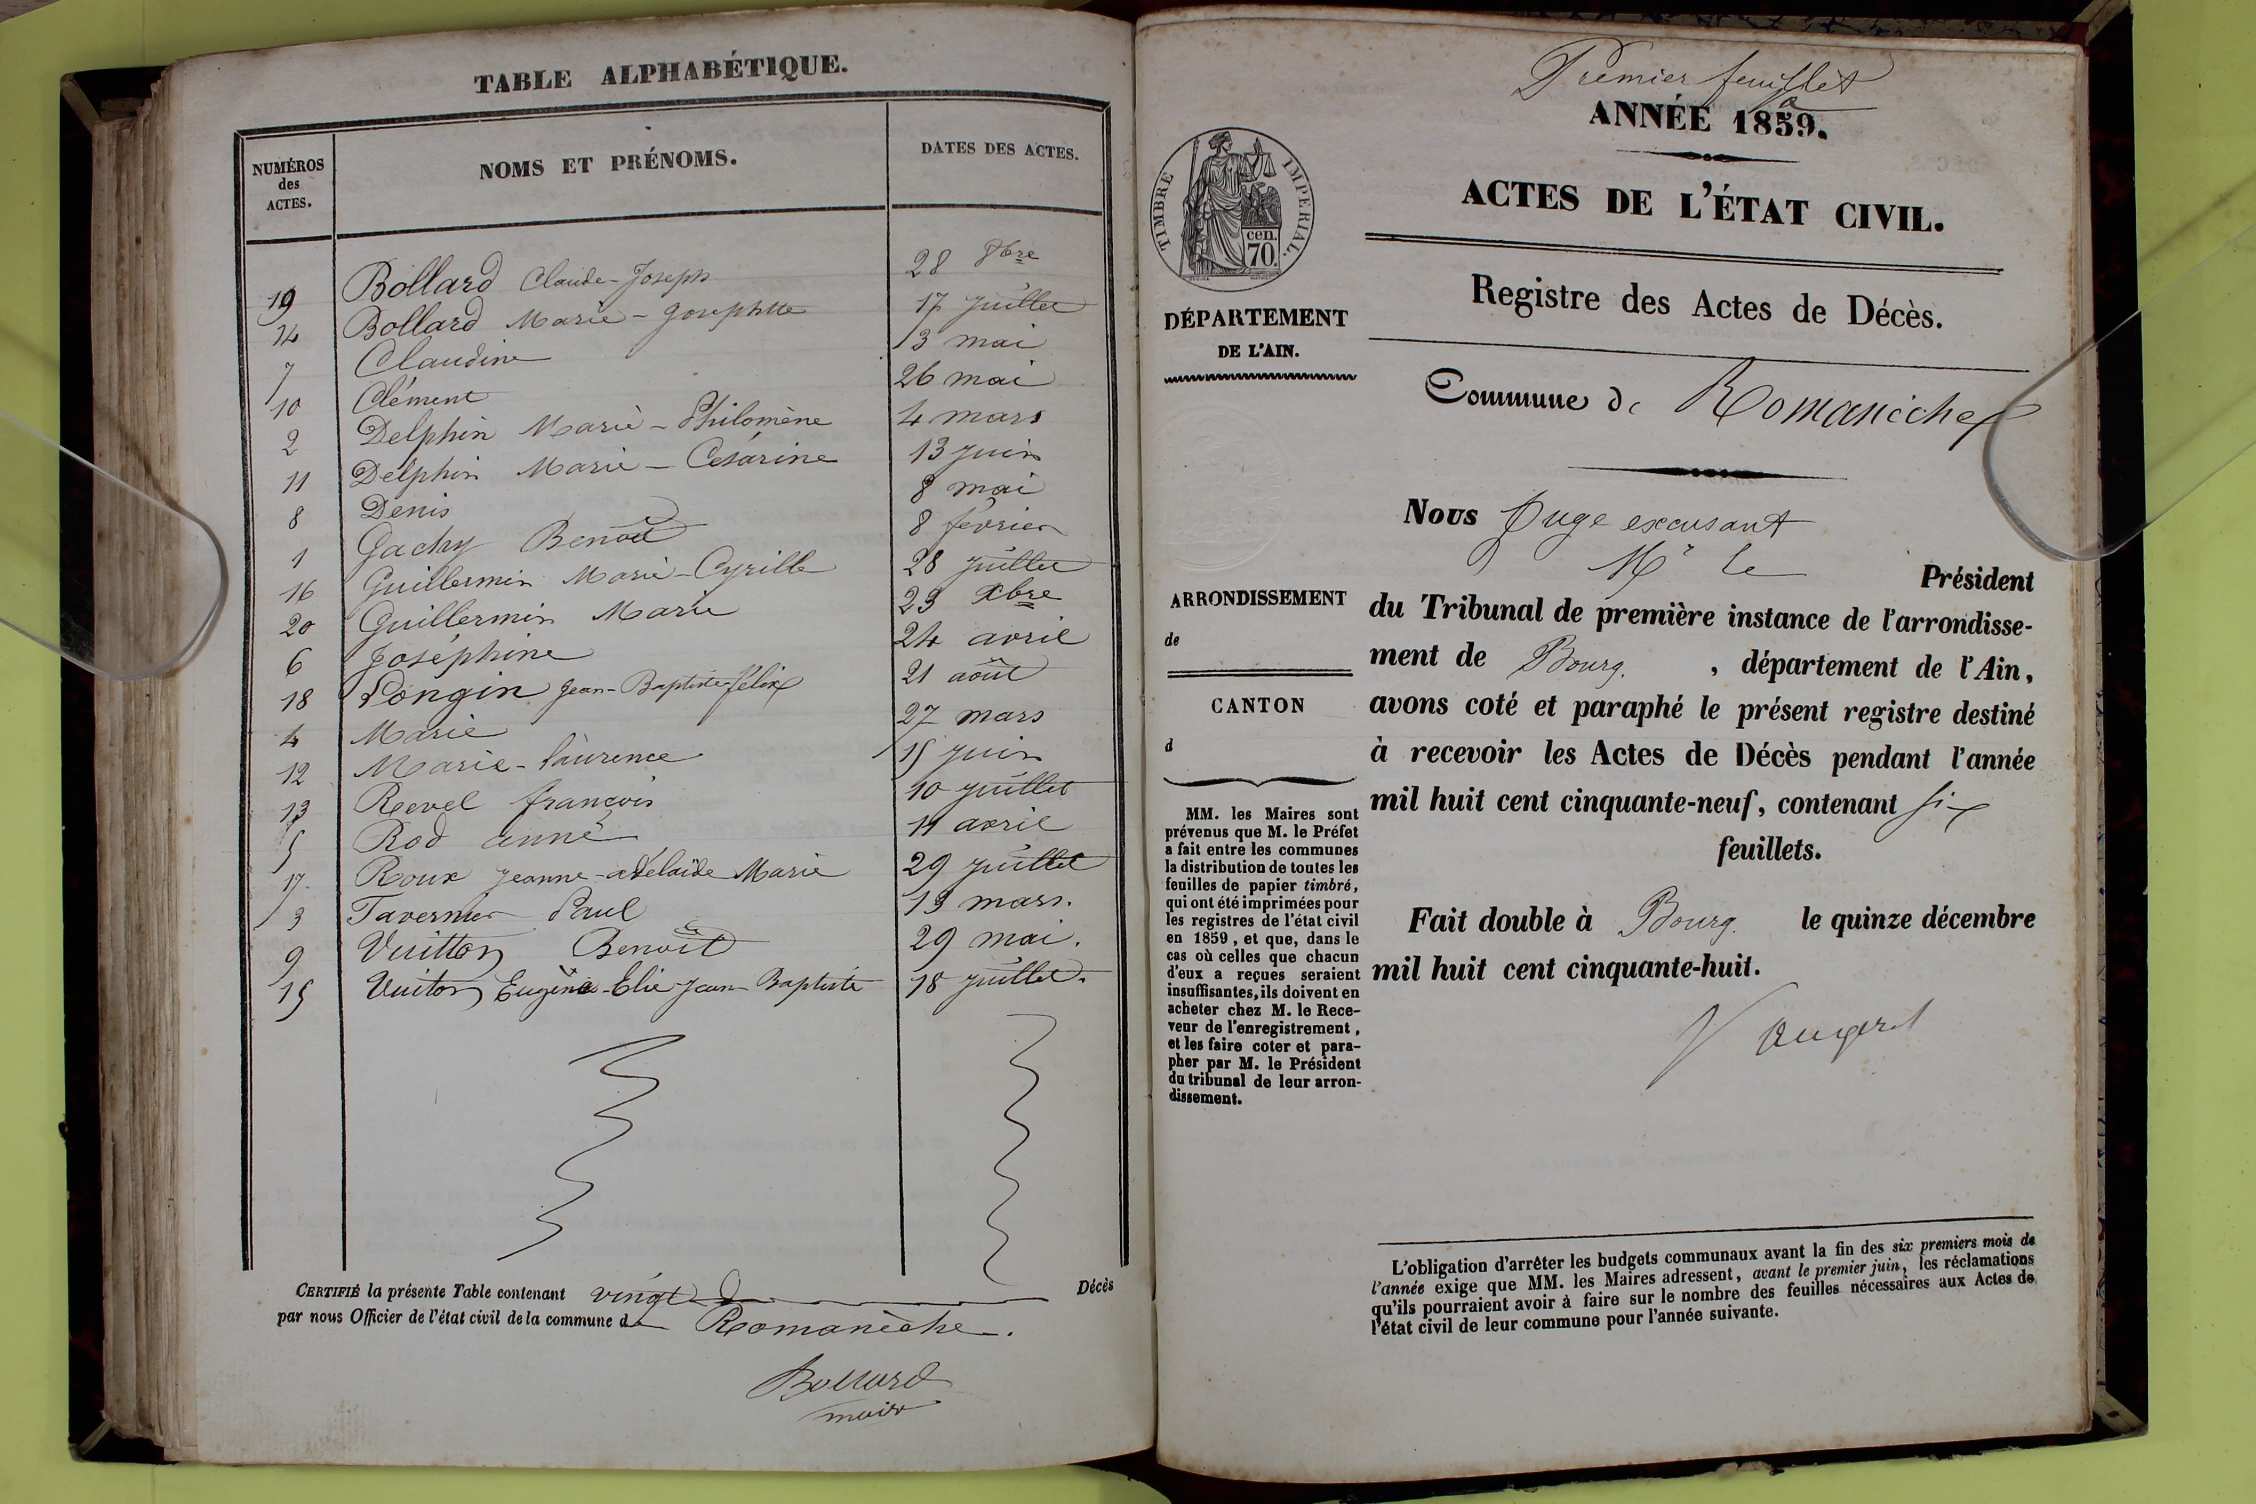 TABLE ALPHABÉTIQUE.
NUMÉROS des ACTES. NOMS ET PRÉNOMS. DATES DES ACTES.
19 Bollard Claude-Joseph 28 9bre
14 Bollard Marie-Josephtte 17 juillet
7 Claudine 3 mai
10 Clément 26 mai
2 Delphin Marie-Philomène 4 mars
11 Delphin Marie-Césarine 13 juin
8 Denis 8 mai
1 Gachy Benoit 8 février
16 Guillermin Marie-Cyrille 28 juillet
20 Guillermin Marie 23 Xbre
6 Joséphine 24 avril
18 Longin Jean-Baptiste Félix 21 août
4 Marie 27 mars
12 Marie-Laurence 15 juin
13 Revel françois 10 juillet
5 Rod anne 11 avril
17 Roux Jeanne-adelaïde Marie 29 juillet
3 Tavernier Paul 13 mars.
9 Vuitton Benoît 29 mai.
15 Vuiton Eugène-Elie Jean Baptiste 18 juillet.
CERTIFIÉ la présente Table contenant vingt Décès
par nous Officier de l'état civil de la commune de Romanèche.
Bollard
maire
Premier feuillet
ANNÉE 1859.
ACTES DE L'ÉTAT CIVIL.
TIMBRE IMPERIAL.
cen.
70.
Registre des Actes de Décès.
DÉPARTEMENT
DE L'AIN.
Commune de Romanèche
Nous Juge excusant
Mr le Président
ARRONDISSEMENT
de
CANTON
d
du Tribunal de première instance de l'arrondisse-
ment de Bourg. , département de l'Ain,
avons coté et paraphé le présent registre destiné
à recevoir les Actes de Décès pendant l'année
mil huit cent cinquante-neuf, contenant six
feuillets.
Fait double à Bourg. le quinze décembre
mil huit cent cinquante-huit.
MM. les Maires sont
prévenus que M. le Préfet
a fait entre les communes
la distribution de toutes les
feuilles de papier timbré,
qui ont été imprimées pour
les registres de l'état civil
en 1859, et que, dans le
cas où celles que chacun
d'eux a reçues seraient
insuffisantes, ils doivent en
acheter chez M. le Rece-
veur de l'enregistrement,
et les faire coter et para-
pher par M. le Président
du tribunal de leur arron-
dissement.
L'obligation d'arrêter les budgets communaux avant la fin des six premiers mois de
l'année exige que MM. les Maires adressent, avant le premier juin, les réclamations
qu'ils pourraient avoir à faire sur le nombre des feuilles nécessaires aux Actes de
l'état civil de leur commune pour l'année suivante.